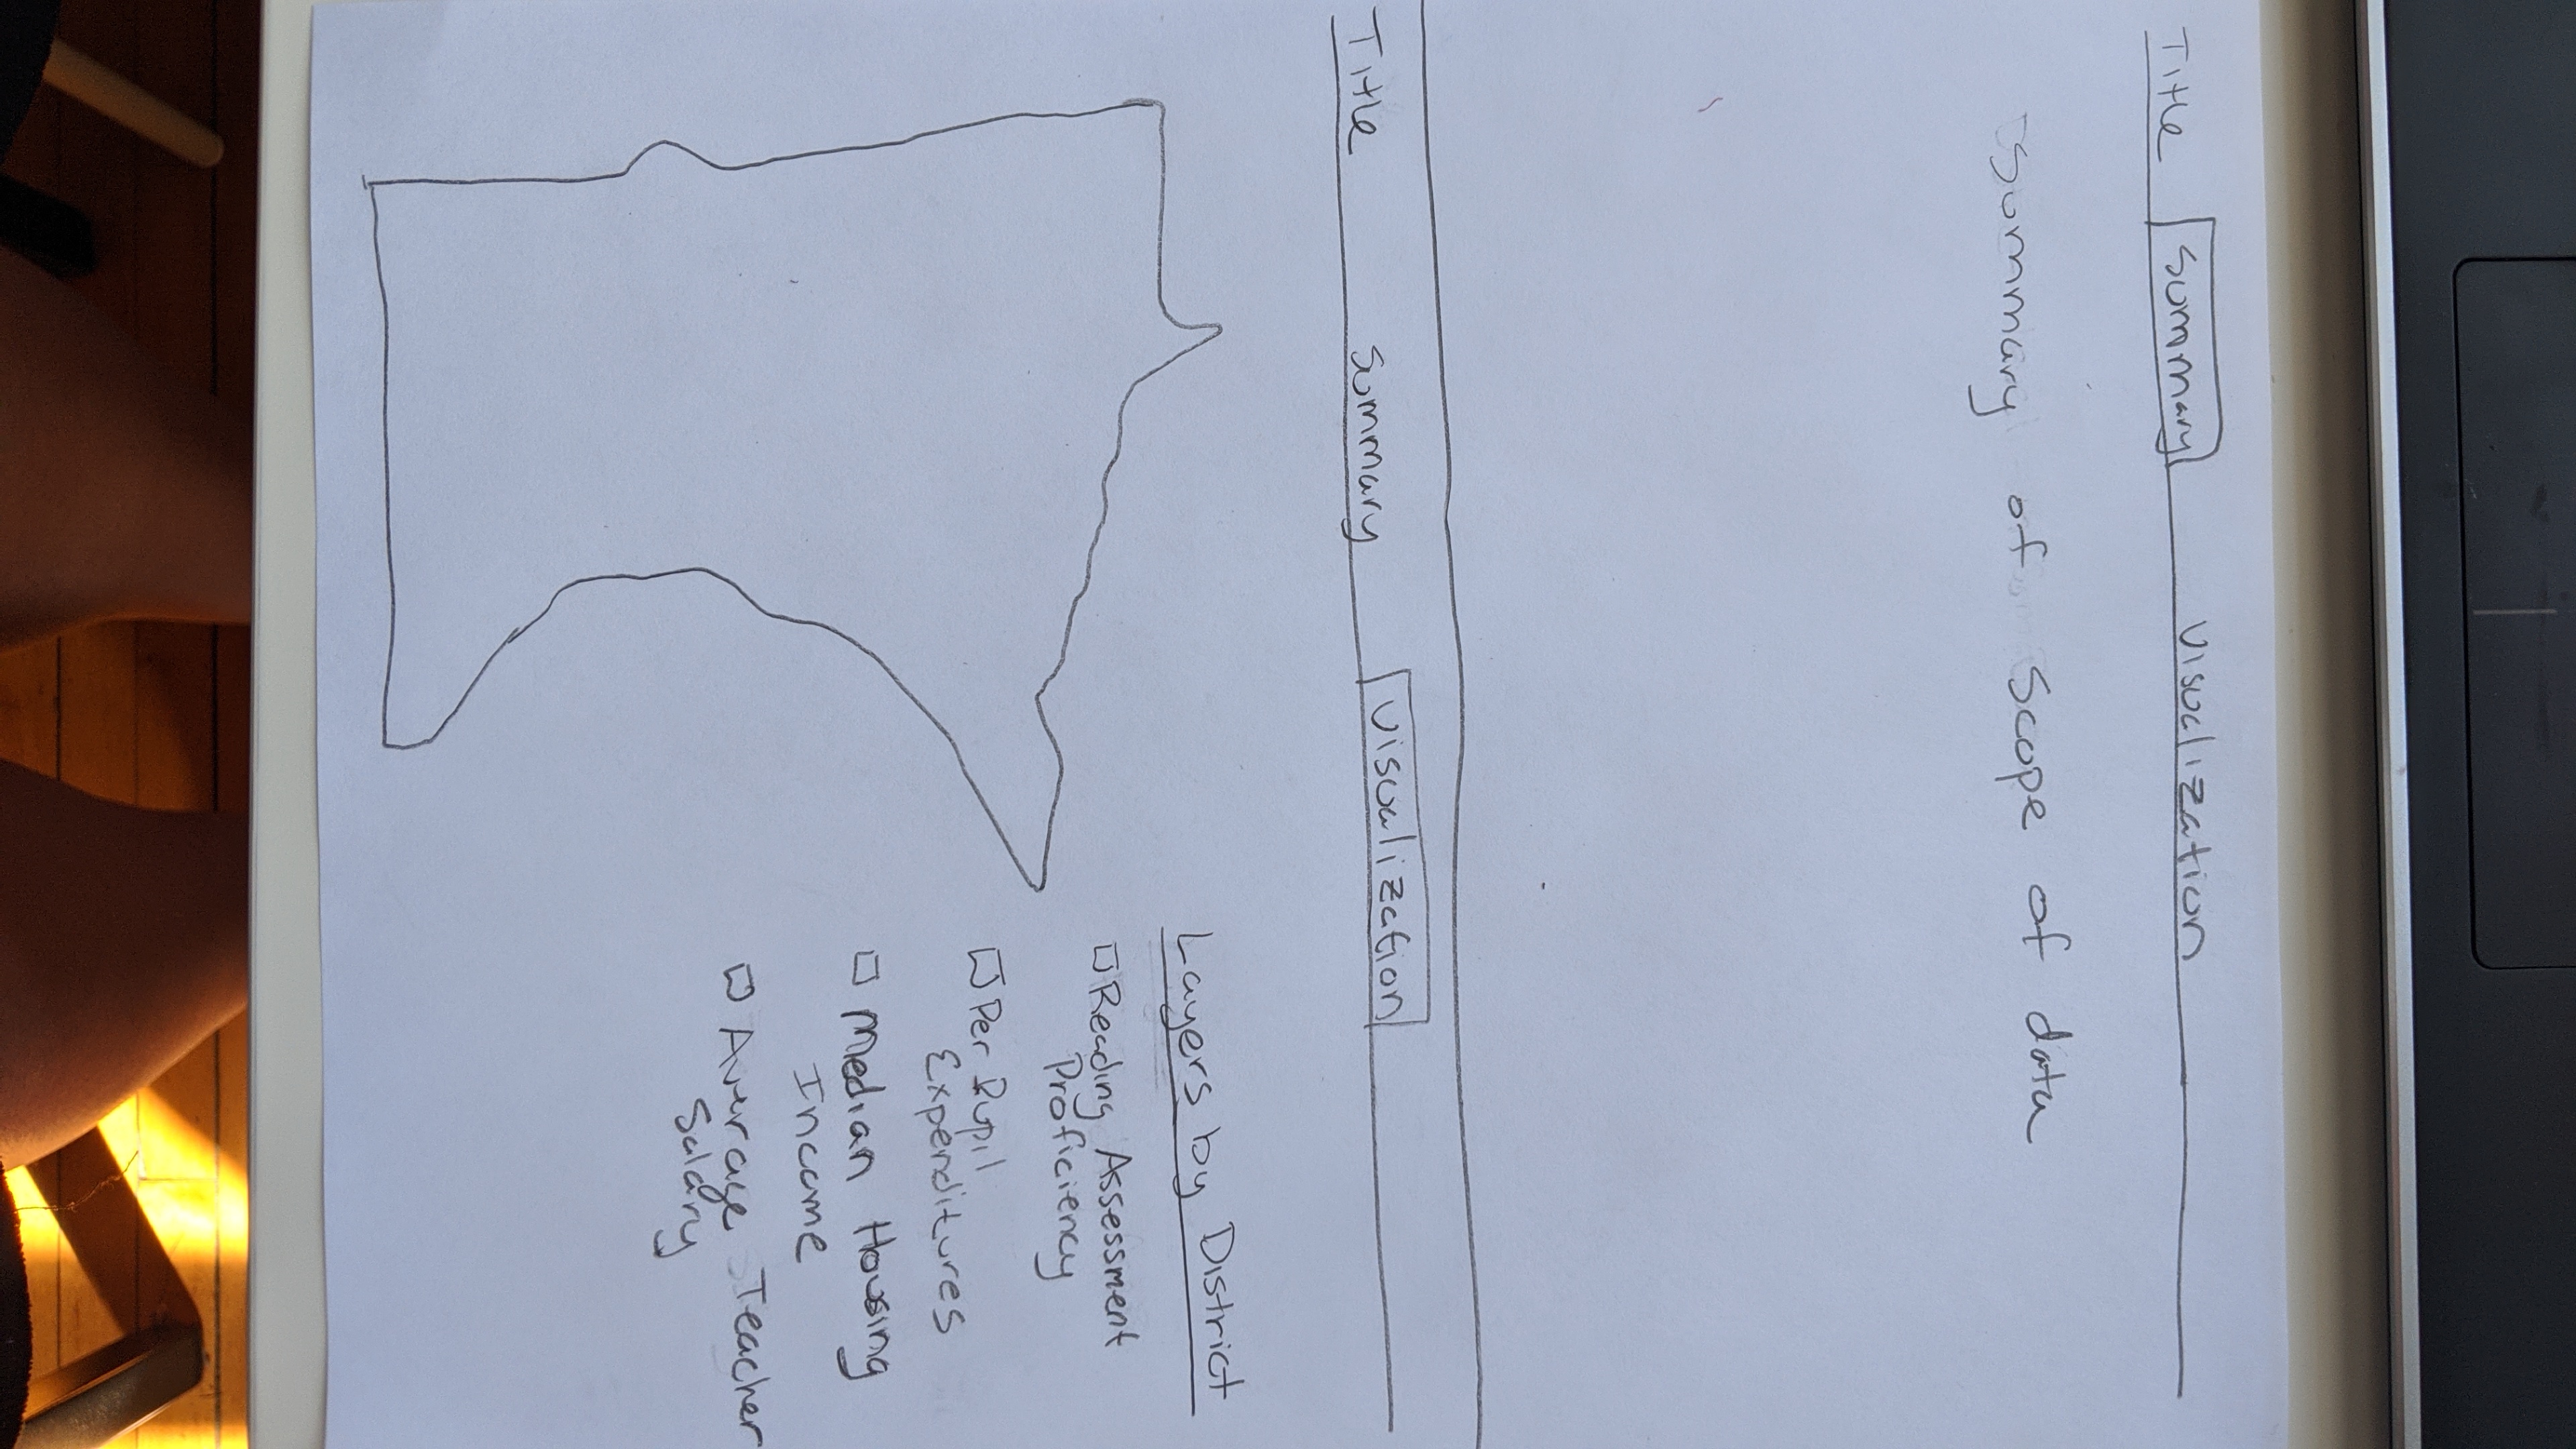 Title Summary Visualization
Summary of Scope of data
Title Summary Visualization
Layers by District
Reading Assessment
Proficiency
Per Pupil
Expenditures
Median Housing
Income
Average Teacher
Salary